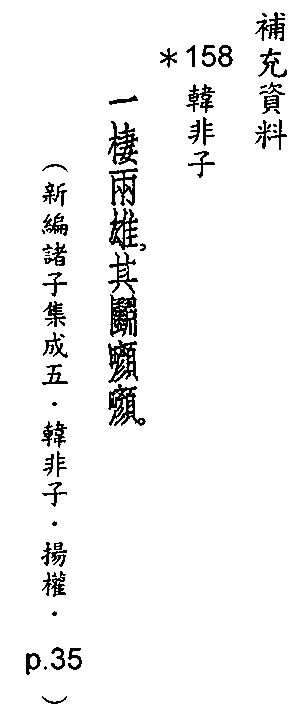 補充資料
＊158 韓非子
一棲兩雄，其鬭㘖㘖。
（新編諸子集成五．韓非子．揚權．p.35）